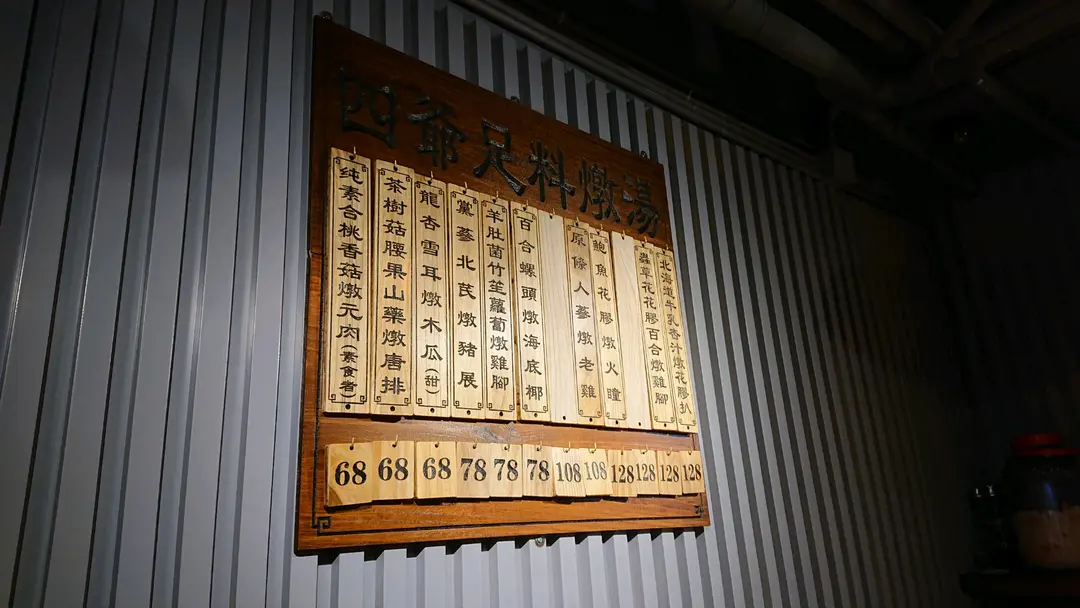 四爺足料燉湯
纯素合桃香菇燉元肉(素食者)
茶樹菇腰果山藥燉唐排
龍杏雪耳燉木瓜(甜)
黨蔘北芪燉豬展
羊肚菌竹笙蘿蔔燉雞腳
百合螺頭燉海底椰
原條人蔘燉老雞
鮑魚花膠燉火瞳
蟲草花花膠百合燉雞腳
北海道牛乳杏汁燉花膠扒
68 68 68 78 78 78 108 108 128 128 128 128